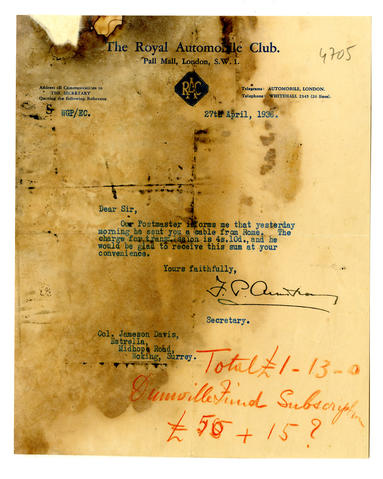 4705
The Royal Automobile Club.
Pall Mall, London, S.W.1.
Address all Communications to
THE SECRETARY
Quoting the following Reference
RAC
Telegrams: AUTOMOBILE, LONDON.
Telephone: WHITEHALL 2345 (30 lines).
WGP/EC.
27th April, 1936.
Dear Sir,
Our Postmaster informs me that yesterday
morning he sent you a cable from Rome. The
charge for transmission is 4s.10d., and he
would be glad to receive this sum at your
convenience.
Yours faithfully,
Secretary.
Col. Jameson Davis,
Estrella,
Midhope Road,
Woking, Surrey.
Total £1-13-0
Dunville Fund Subscription
£ 50 + 15 ?